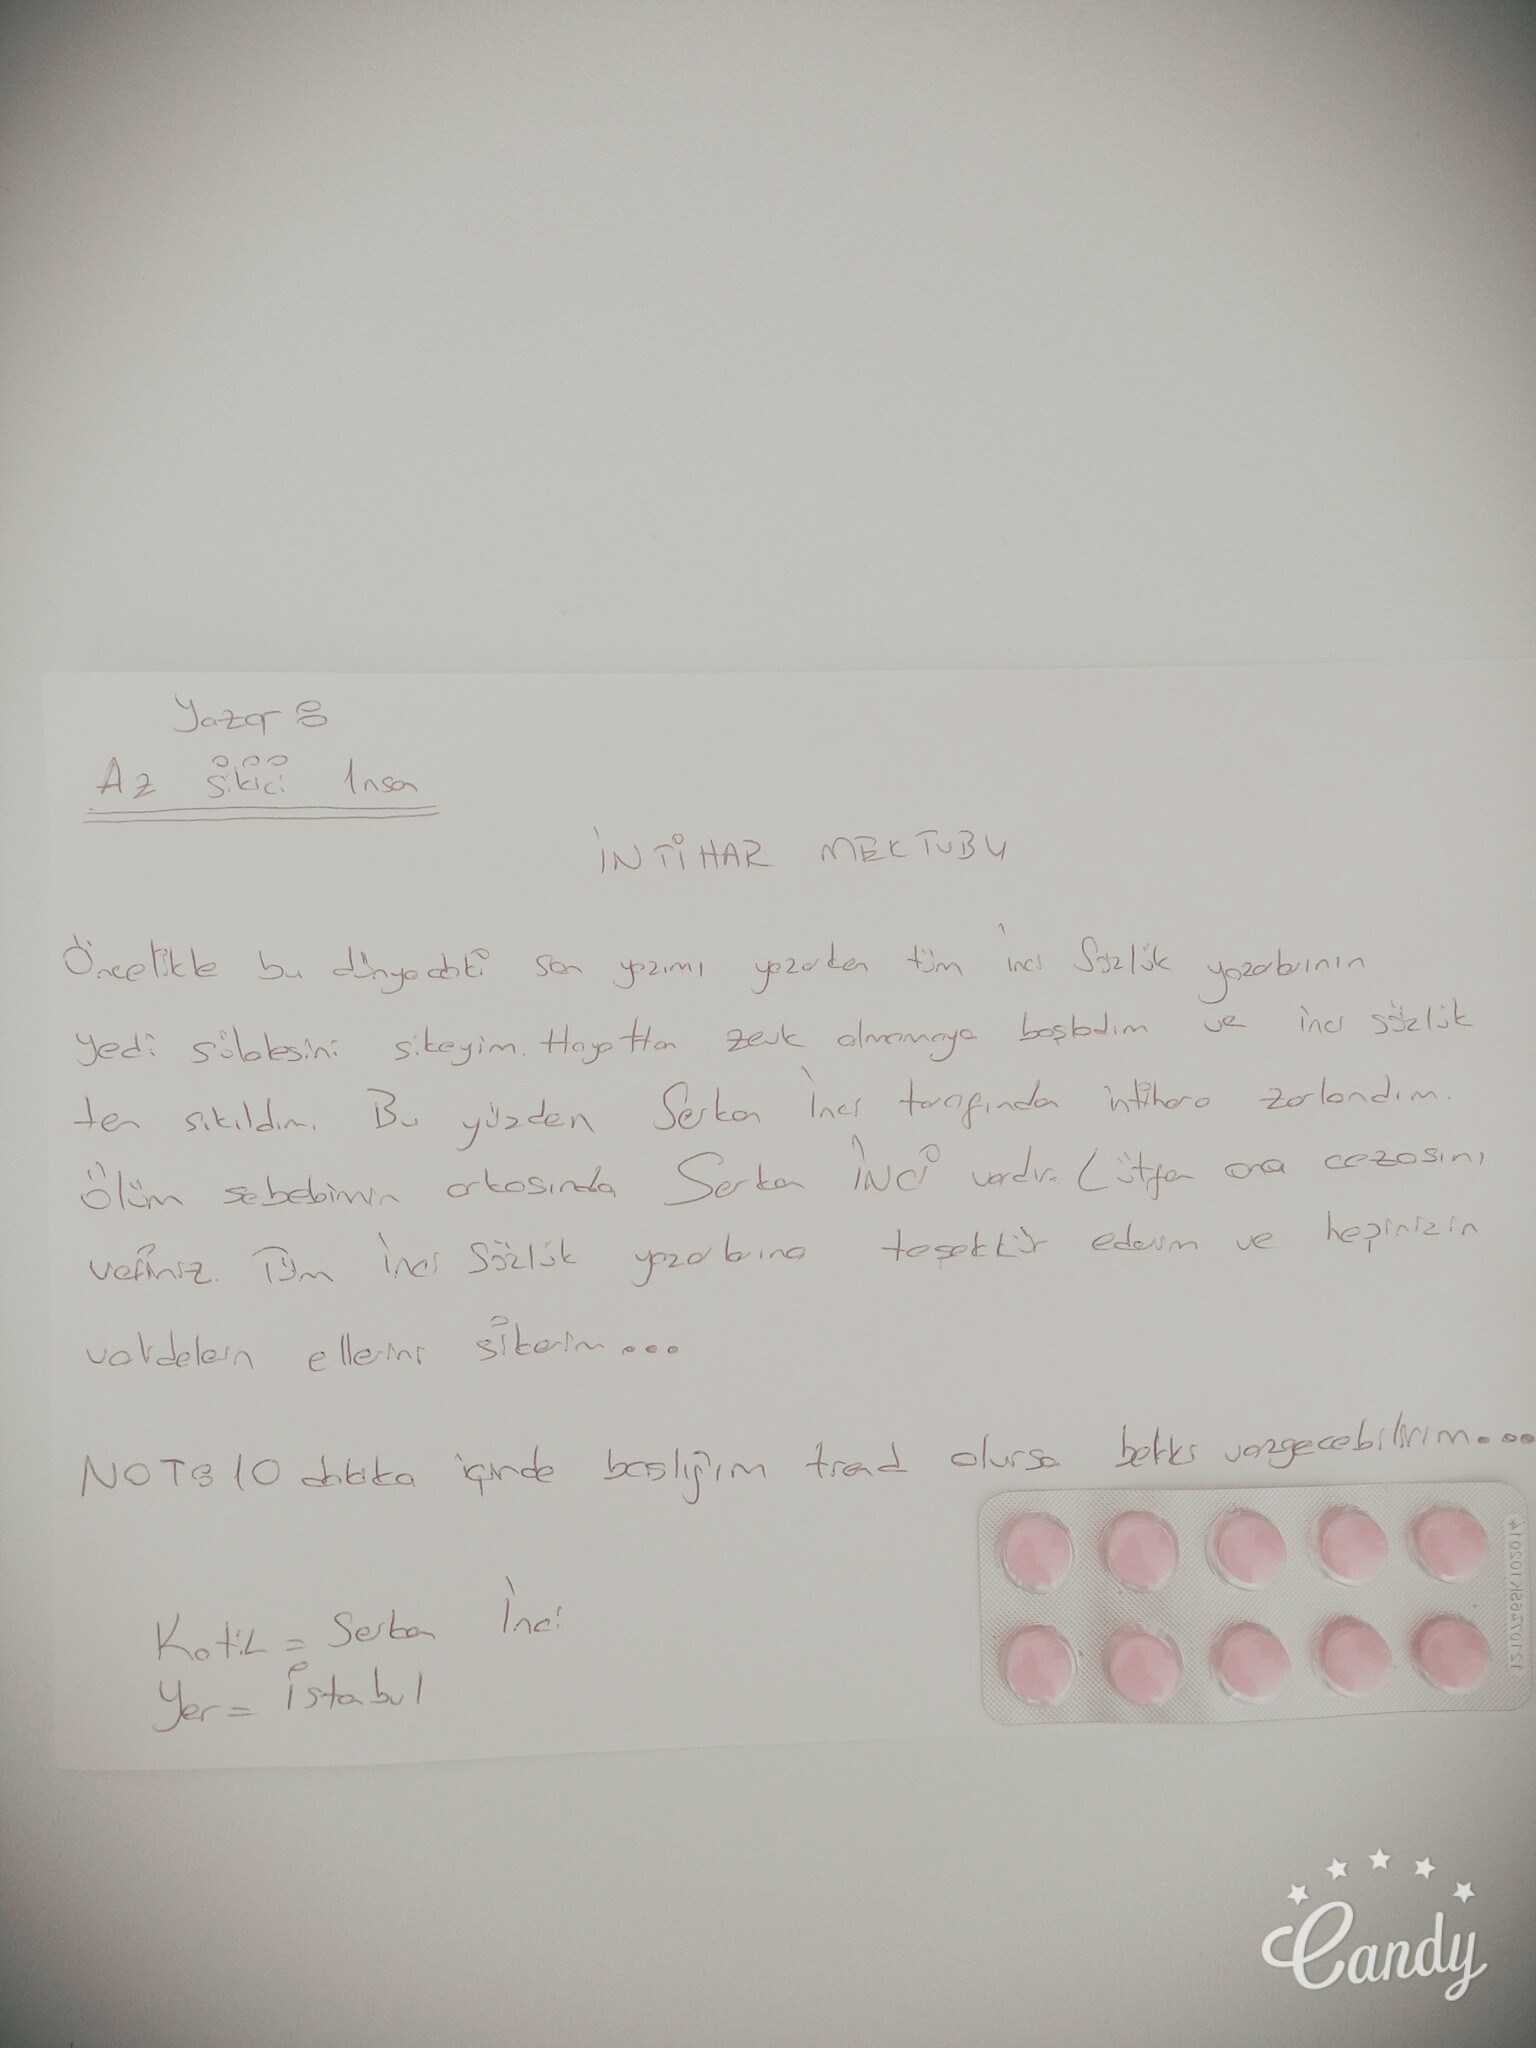 Yazar :
Az Sikici İnsan
İNTİHAR MEKTUBU
Öncelikle bu dünyadaki son yazımı yazarken tüm İnci Sözlük yazarlarının
yedi sülalesini sikeyim. Hayattan zevk almamaya başladım ve inci sözlük
ten sıkıldım. Bu yüzden Serkan İnci tarafından intihara zorlandım.
Ölüm sebebimin arkasında Serkan İNCİ vardır. Lütfen ona cezasını
veriniz. Tüm İnci Sözlük yazarlarına teşekkür ederim ve hepinizin
validelerin ellerini sikerim...
NOT: 10 dakika içinde başlığım trend olursa belki vazgeçebilirim....
Katil = Serkan İnci
Yer = İstanbul
Candy